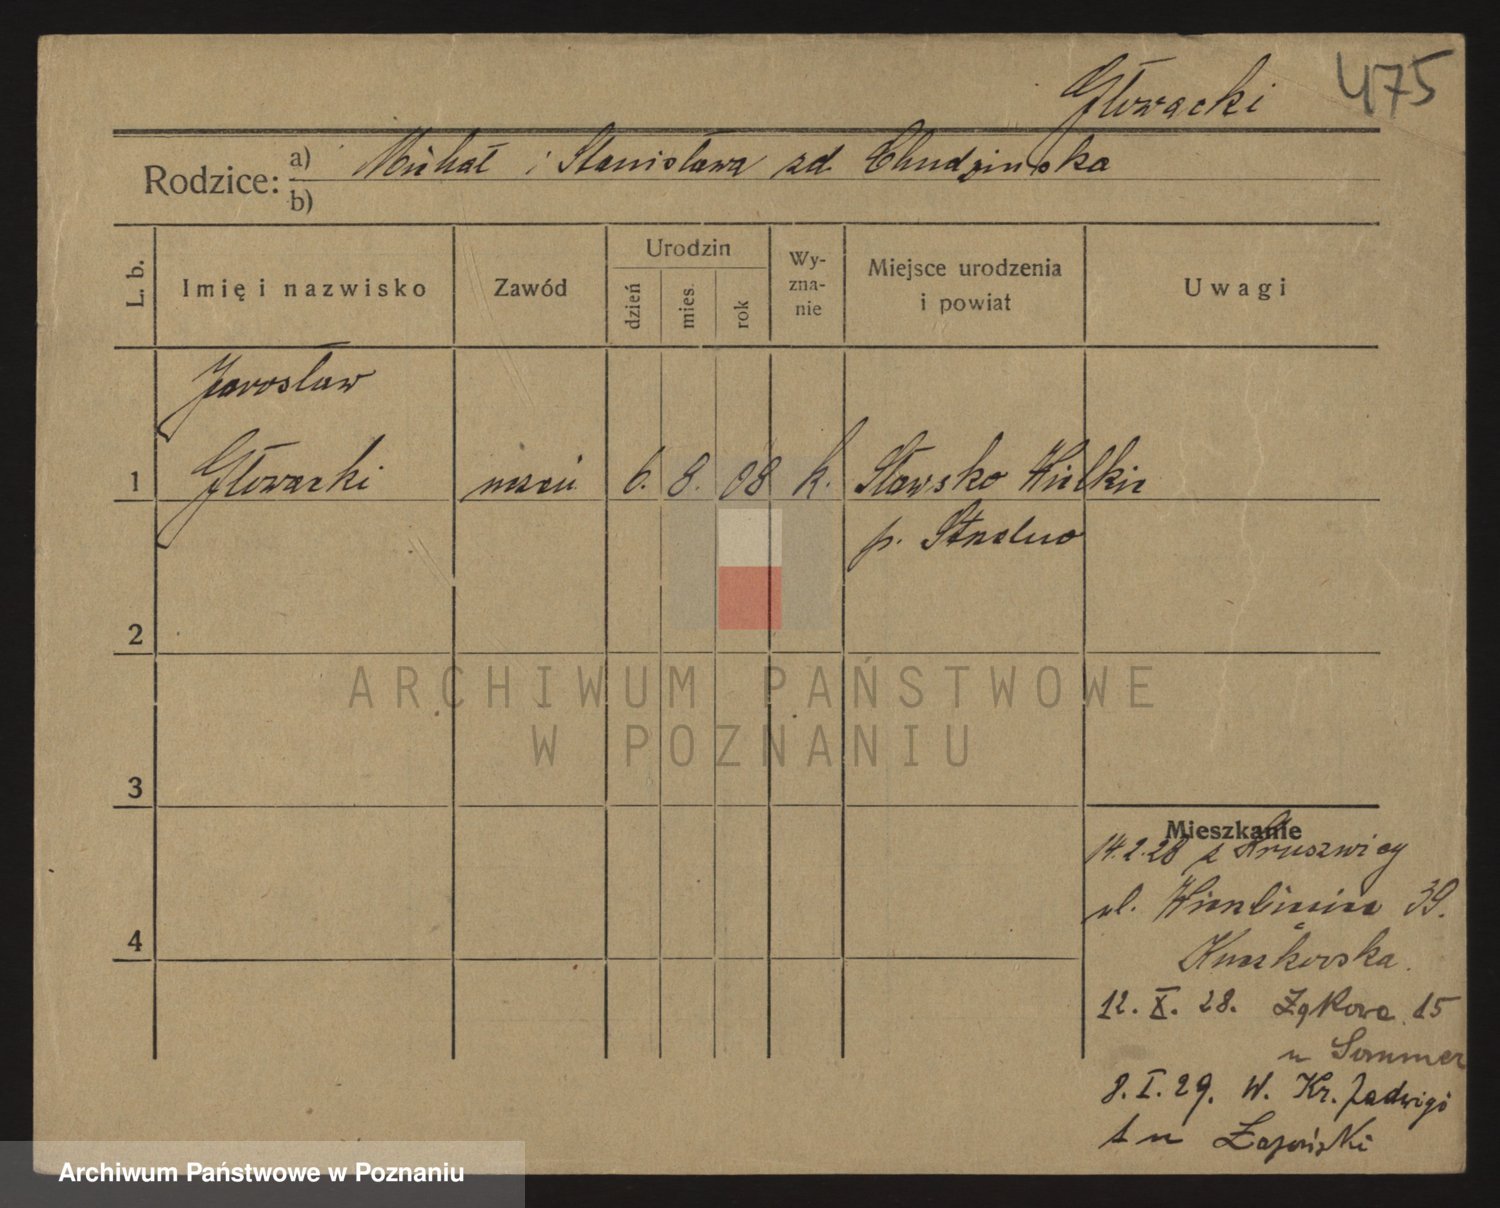 Głowacki 475
Rodzice: a) Michał i Stanisława zd Chudzińska
b)
L. b. Imię i nazwisko Zawód Urodzin dzień mies. rok Wy-zna-nie Miejsce urodzenia i powiat Uwagi
Jarosław
1 Głowacki uczeń 6. 8. 08 k. Sławsko Wielkie
p. Strzelno
2
ARCHIWUM PAŃSTWOWE
W POZNANIU
3
Mieszkanie
14.2.28 z Kruszwicy
ul. Wierzbięcice 39.
4
12. X. 28. Łąkowa 15
u Sommer
8. I. 29. W. Kr. Jadwigi
1 u
Archiwum Państwowe w Poznaniu